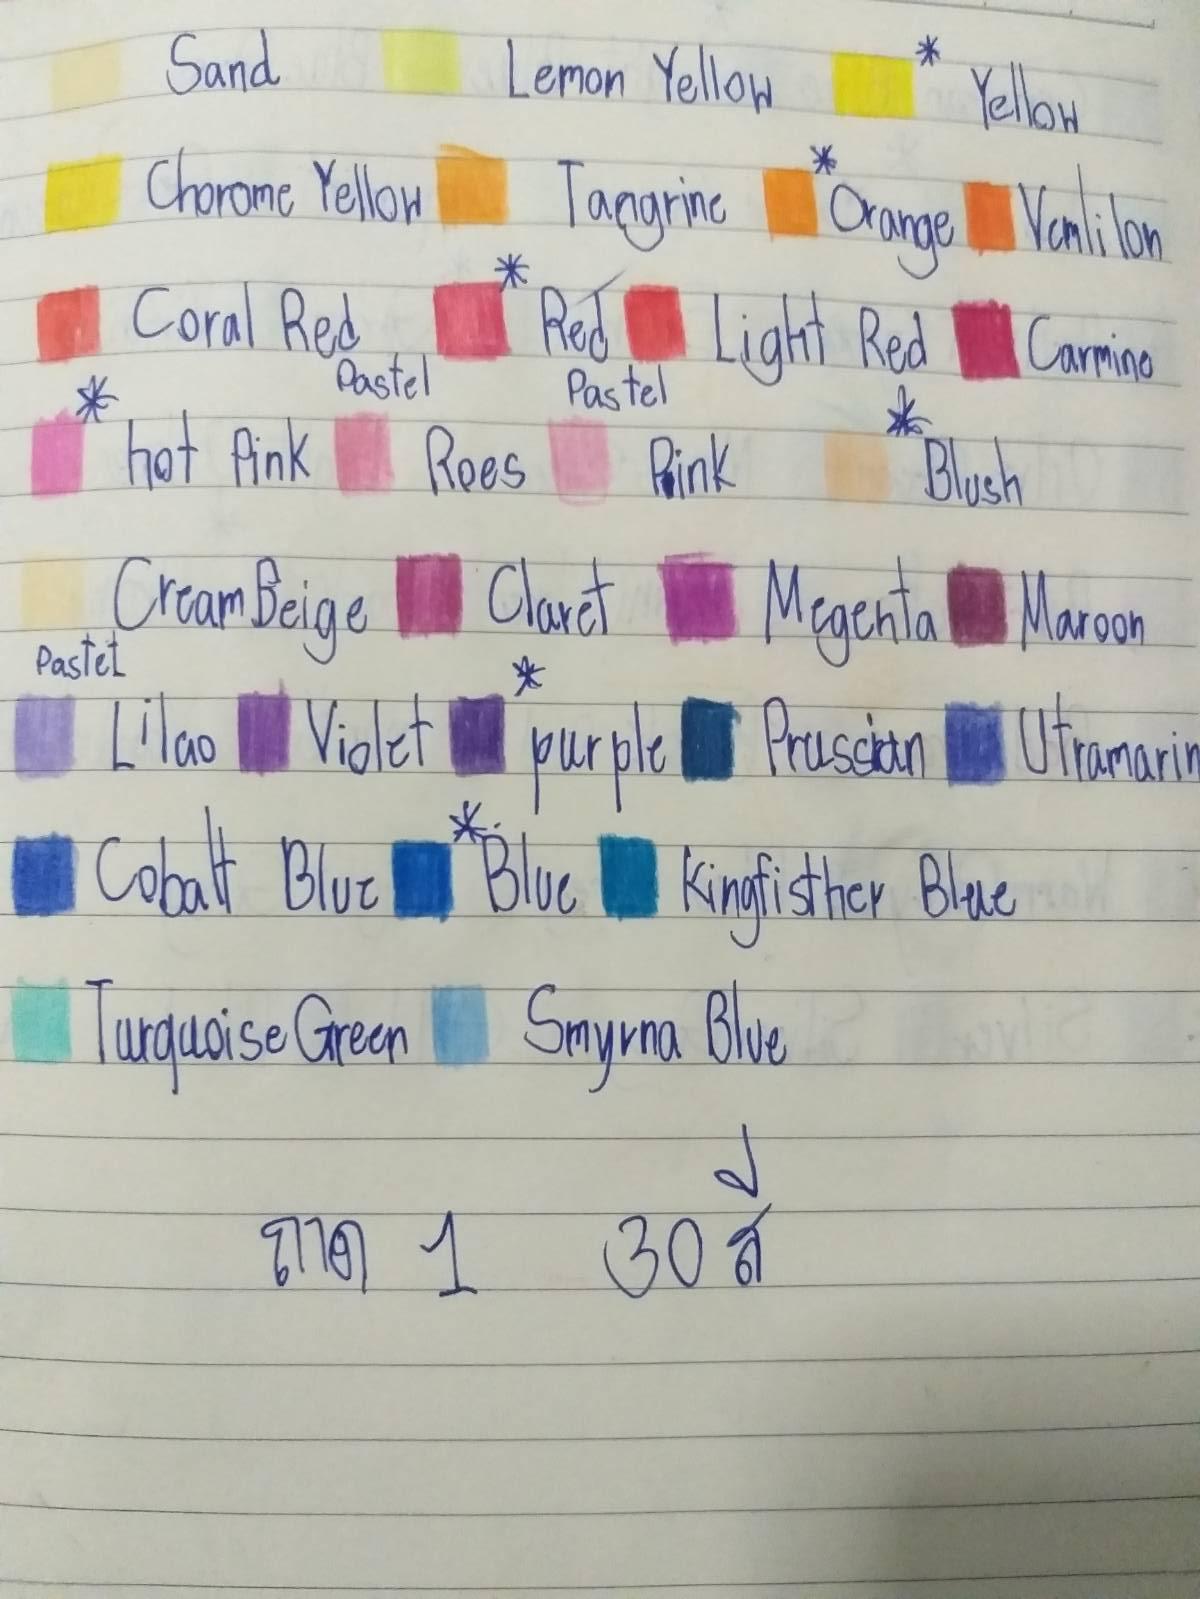 Sand Lemon Yellow * Yellow
Chorome Yellow Tangrine * Orange Vemlilon
Coral Red * Red Light Red Carmine
Pastel Pastel
* hot Pink Roes Pink * Blush
Cream Beige Claret Megenta Maroon
Pastel
Lilao Violet * purple Prussian Utramarin
Cobalt Blue * Blue Kingfisther Blue
Turquoise Green Smyrna Blue
ถาด 1 30 สี